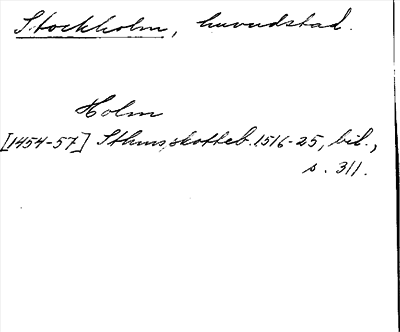 Stockholm, huvudstad.
Holm
[1454-57] Sthms skotteb. 1516-25, bil.,
s. 311.